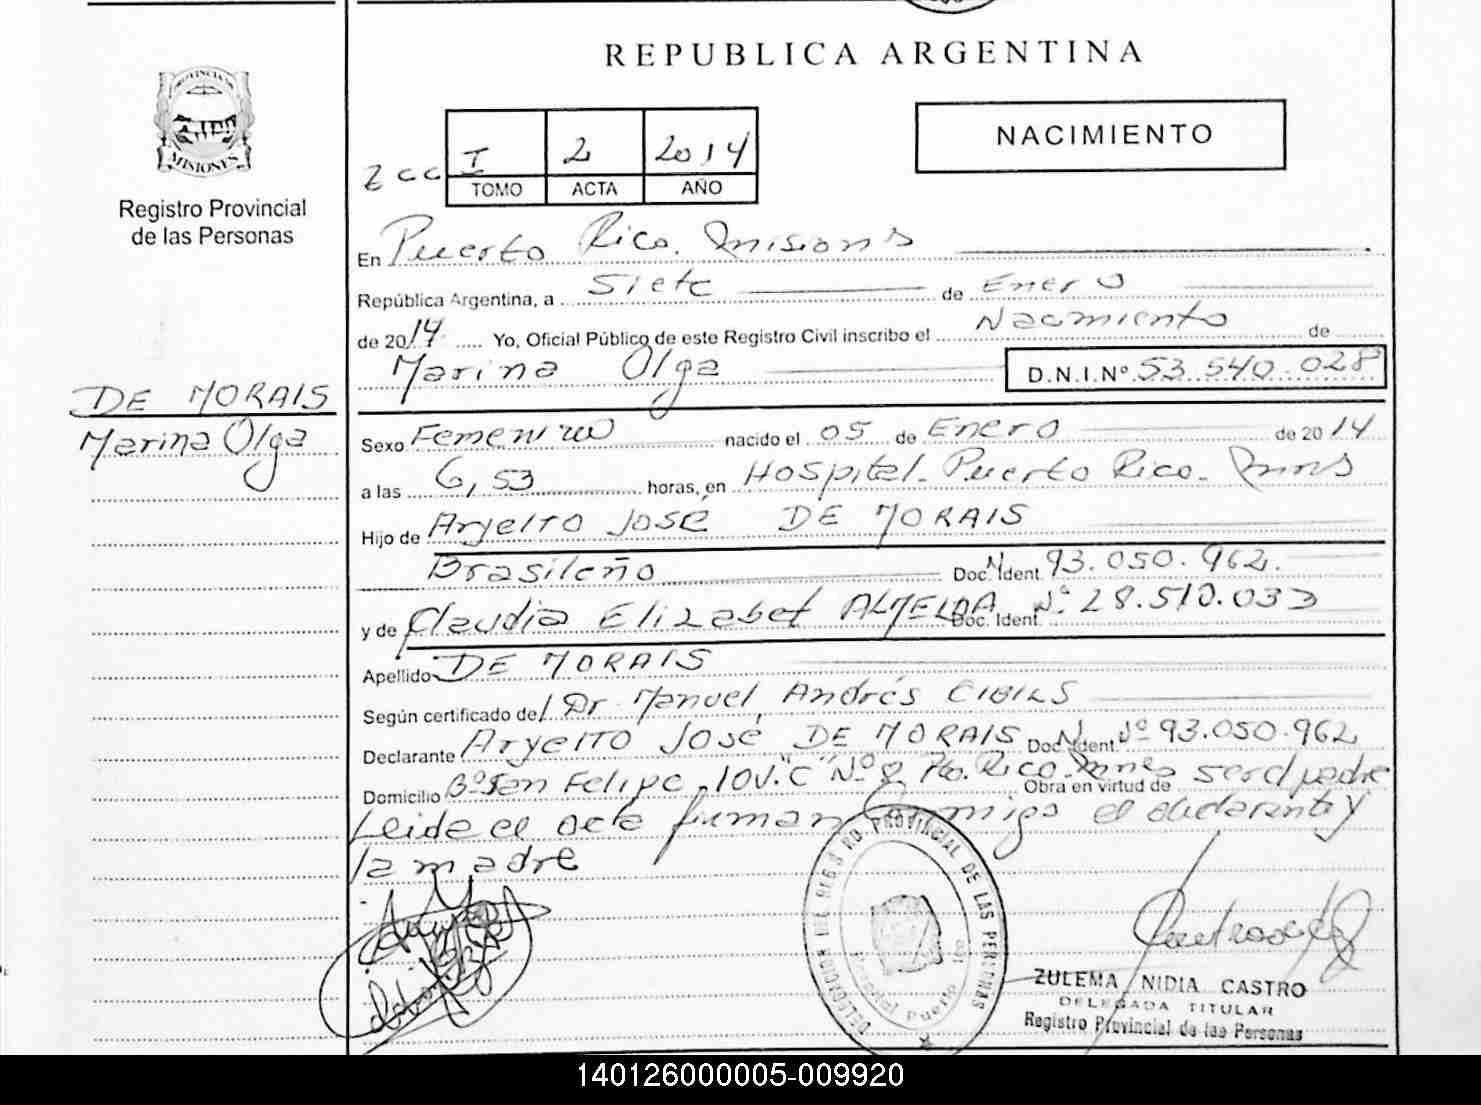 REPUBLICA ARGENTINA
PROVINCIA DE
MISIONES
Registro Provincial
de las Personas
I 2 2014
TOMO ACTA AÑO
NACIMIENTO
En Puerto Rico. Misiones
República Argentina, a Siete de Enero
de 2014 Yo, Oficial Público de este Registro Civil inscribo el Nacimiento de
Marina Olga D.N.I.Nº 53.540.028
DE MORAIS
Marina Olga
Sexo Femenino nacido el 05 de Enero de 2014
a las 6,53 horas, en Hospital. Puerto Rico. Mnes
Hijo de Aryelto José DE MORAIS
Brasileño Doc. Ident. 93.050.962.
y de Claudia Elizabet ALMEIDA Doc. Ident. Nº 28.510.033
Apellido DE MORAIS
Según certificado del Dr. Manuel Andrés CIBILS
Declarante Aryelto José DE MORAIS Doc. Ident. Nº 93.050.962
Domicilio Bº San Felipe, 10 V. "C" Nº 8 Pto. Rico. Mnes Obra en virtud de ser el padre
Leida el acta firman conmigo el declarante y
la madre
DELEGACION DEL REGISTRO PROVINCIAL DE LAS PERSONAS
Hospital Puerto
ZULEMA NIDIA CASTRO
DELEGADA TITULAR
Registro Provincial de las Personas
140126000005-009920